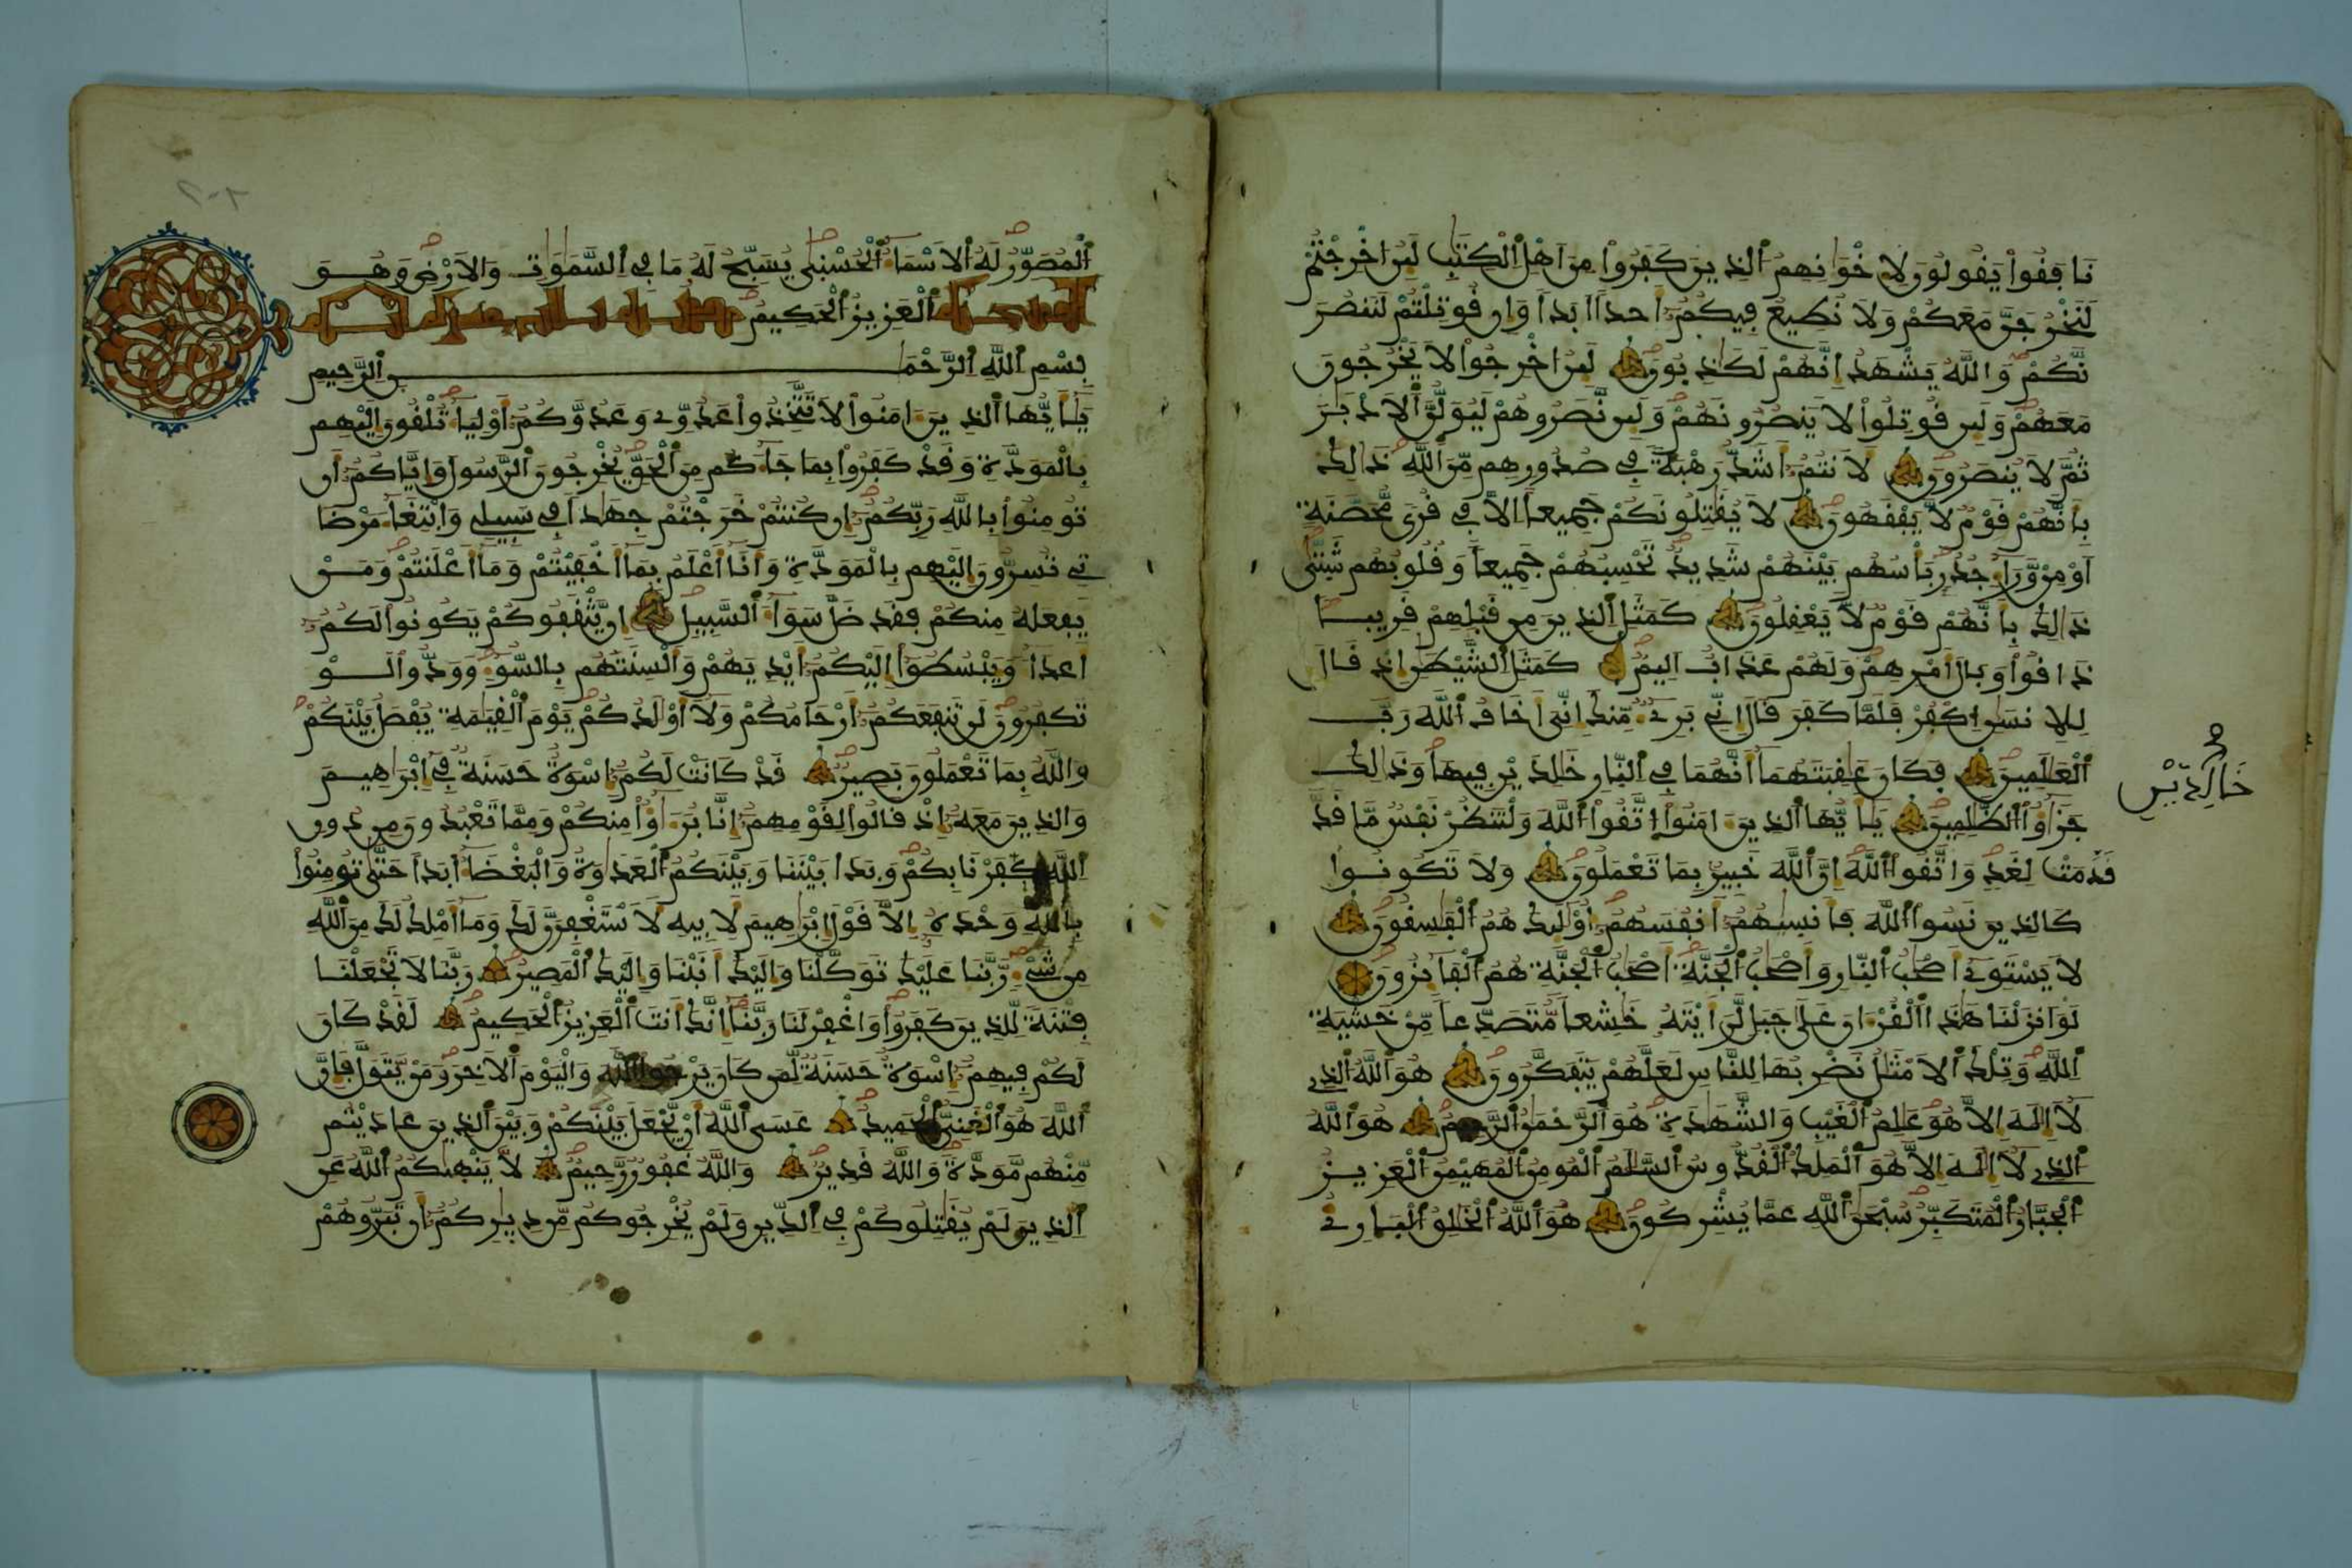 نَافَقُواْ يَقُولُونَ لِإِخْوَانِهِمُ الذِينَ كَفَرُواْ مِنَ اَهْلِ الْكِتَٰبِ لَئِنُ اخْرِجْتُمْ
لَنَخْرُجَنَّ مَعَكُمْ وَلَا نُطِيعُ فِيكُمُ أَحَداً اَبَداً وَإِن قُوتِلْتُمْ لَنَنصُرَ
نَّكُمْ وَاللَّهُ يَشْهَدُ إِنَّهُمْ لَكَٰذِبُونَ لَئِنُ اخْرِجُواْ لَا يَخْرُجُونَ
مَعَهُمْ وَلَئِن قُوتِلُواْ لَا يَنصُرُونَهُمْ وَلَئِن نَّصَرُوهُمْ لَيُوَلُّنَّ الَادْبَٰرَ
ثُمَّ لَا يُنصَرُونَ لَأَنتُمُ أَشَدُّ رَهْبَةً فِي صُدُورِهِم مِّنَ اللَّهِ ذَٰلِكَ
بِأَنَّهُمْ قَوْمٌ لَّا يَفْقَهُونَ لَا يُقَٰتِلُونَكُمْ جَمِيعاً اِلَّا فِي قُرىً مُّحَصَّنَةٍ
اَوْ مِنْ وَّرَاءِ جُدُرٍ بَأْسُهُم بَيْنَهُمْ شَدِيدٌ تَحْسِبُهُمْ جَمِيعاً وَقُلُوبُهُمْ شَتَّىٰ
ذَٰلِكَ بِأَنَّهُمْ قَوْمٌ لَّا يَعْقِلُونَ كَمَثَلِ الذِينَ مِن قَبْلِهِمْ قَرِيباً
ذَاقُواْ وَبَالَ أَمْرِهِمْ وَلَهُمْ عَذَابٌ اَلِيمٌ كَمَثَلِ الشَّيْطَٰنِ إِذْ قَالَ
لِلِانسَٰنِ اِكْفُرْ فَلَمَّا كَفَرَ قَالَ إِنِّي بَرِيءٌ مِّنكَ إِنِّيَ أَخَافُ اللَّهَ رَبَّ
الْعَٰلَمِينَ فَكَانَ عَٰقِبَتَهُمَا أَنَّهُمَا فِي النَّارِ خَٰلِدَيْنِ فِيهَا وَذَٰلِكَ
خَالِدَيْنِ
جَزَٰؤُاْ الظَّٰلِمِينَ يَٰأَيُّهَا الذِينَ ءَامَنُواْ اتَّقُواْ اللَّهَ وَلْتَنظُرْ نَفْسٌ مَّا قَدَّ
قَدَّمَتْ لِغَدٍ وَاتَّقُواْ اللَّهَ إِنَّ اللَّهَ خَبِيرٌ بِمَا تَعْمَلُونَ وَلَا تَكُونُواْ
كَالذِينَ نَسُواْ اللَّهَ فَأَنسَٰهُمُ أَنفُسَهُمُ أُوْلَٰئِكَ هُمُ الْفَٰسِقُونَ
لَا يَسْتَوِي أَصْحَٰبُ النَّارِ وَأَصْحَٰبُ الْجَنَّةِ أَصْحَٰبُ الْجَنَّةِ هُمُ الْفَائِزُونَ
لَوَ اَنزَلْنَا هَٰذَا الْقُرْءَانَ عَلَىٰ جَبَلٍ لَّرَأَيْتَهُ خَٰشِعاً مُّتَصَدِّعاً مِّنْ خَشْيَةِ
اللَّهِ وَتِلْكَ الَامْثَٰلُ نَضْرِبُهَا لِلنَّاسِ لَعَلَّهُمْ يَتَفَكَّرُونَ هُوَ اللَّهُ الذِي
لَا إِلَٰهَ إِلَّا هُوَ عَٰلِمُ الْغَيْبِ وَالشَّهَٰدَةِ هُوَ الرَّحْمَٰنُ الرَّحِيمُ هُوَ اللَّهُ
الذِي لَا إِلَٰهَ إِلَّا هُوَ الْمَلِكُ الْقُدُّوسُ السَّلَٰمُ الْمُومِنُ الْمُهَيْمِنُ الْعَزِيزُ
الْجَبَّارُ الْمُتَكَبِّرُ سُبْحَٰنَ اللَّهِ عَمَّا يُشْرِكُونَ هُوَ اللَّهُ الْخَٰلِقُ الْبَارِئُ
الْمُصَوِّرُ لَهُ الَاسْمَاءُ الْحُسْنَىٰ يُسَبِّحُ لَهُ مَا فِي السَّمَٰوَٰتِ وَالَارْضِ وَهُوَ
الْعَزِيزُ الْحَكِيمُ
بِسْمِ اللَّهِ الرَّحْمَٰنِ الرَّحِيمِ
يَٰأَيُّهَا الذِينَ ءَامَنُواْ لَا تَتَّخِذُواْ عَدُوِّي وَعَدُوَّكُمُ أَوْلِيَاءَ تُلْقُونَ إِلَيْهِم
بِالْمَوَدَّةِ وَقَدْ كَفَرُواْ بِمَا جَاءَكُم مِنَ الْحَقِّ يُخْرِجُونَ الرَّسُولَ وَإِيَّاكُمُ أَن
تُومِنُواْ بِاللَّهِ رَبِّكُمُ إِن كُنتُمْ خَرَجْتُمْ جِهَٰداً فِي سَبِيلِي وَابْتِغَاءَ مَرْضَا
تِي تُسِرُّونَ إِلَيْهِم بِالْمَوَدَّةِ وَأَنَا أَعْلَمُ بِمَا أَخْفَيْتُمْ وَمَا أَعْلَنتُمْ وَمَنْ
يَفْعَلْهُ مِنكُمْ فَقَد ضَّلَّ سَوَاءَ السَّبِيلِ إِنْ يَّثْقَفُوكُمْ يَكُونُواْ لَكُمُ
أَعْدَاءً وَيَبْسُطُواْ إِلَيْكُمُ أَيْدِيَهُمْ وَأَلْسِنَتَهُم بِالسُّوءِ وَوَدُّواْ لَوْ
تَكْفُرُونَ لَن تَنفَعَكُمُ أَرْحَامُكُمْ وَلَا أَوْلَٰدُكُمْ يَوْمَ الْقِيَٰمَةِ يُفْصَلُ بَيْنَكُمْ
وَاللَّهُ بِمَا تَعْمَلُونَ بَصِيرٌ قَدْ كَانَتْ لَكُمُ إِسْوَةٌ حَسَنَةٌ فِي إِبْرَٰهِيمَ
وَالذِينَ مَعَهُ إِذْ قَالُواْ لِقَوْمِهِمُ إِنَّا بُرَءَٰؤُاْ مِنكُمْ وَمِمَّا تَعْبُدُونَ مِن دُونِ
اللَّهِ كَفَرْنَا بِكُمْ وَبَدَا بَيْنَنَا وَبَيْنَكُمُ الْعَدَٰوَةُ وَالْبَغْضَاءُ أَبَداً حَتَّىٰ تُومِنُواْ
بِاللَّهِ وَحْدَهُ إِلَّا قَوْلَ إِبْرَٰهِيمَ لِأَبِيهِ لَأَسْتَغْفِرَنَّ لَكَ وَمَا أَمْلِكُ لَكَ مِنَ اللَّهِ
مِن شَيْءٍ رَّبَّنَا عَلَيْكَ تَوَكَّلْنَا وَإِلَيْكَ أَنَبْنَا وَإِلَيْكَ الْمَصِيرُ رَبَّنَا لَا تَجْعَلْنَا
فِتْنَةً لِّلذِينَ كَفَرُواْ وَاغْفِرْ لَنَا رَبَّنَا إِنَّكَ أَنتَ الْعَزِيزُ الْحَكِيمُ لَقَدْ كَانَ
لَكُمْ فِيهِمُ إِسْوَةٌ حَسَنَةٌ لِّمَن كَانَ يَرْجُواْ اللَّهَ وَالْيَوْمَ الَاخِرَ وَمَنْ يَّتَوَلَّ فَإِنَّ
اللَّهَ هُوَ الْغَنِيُّ الْحَمِيدُ عَسَى اللَّهُ أَنْ يَّجْعَلَ بَيْنَكُمْ وَبَيْنَ الذِينَ عَادَيْتُم
مِّنْهُم مَّوَدَّةً وَاللَّهُ قَدِيرٌ وَاللَّهُ غَفُورٌ رَّحِيمٌ لَّا يَنْهَىٰكُمُ اللَّهُ عَنِ
الذِينَ لَمْ يُقَٰتِلُوكُمْ فِي الدِّينِ وَلَمْ يُخْرِجُوكُم مِّن دِيَٰرِكُمُ أَن تَبَرُّوهُمْ